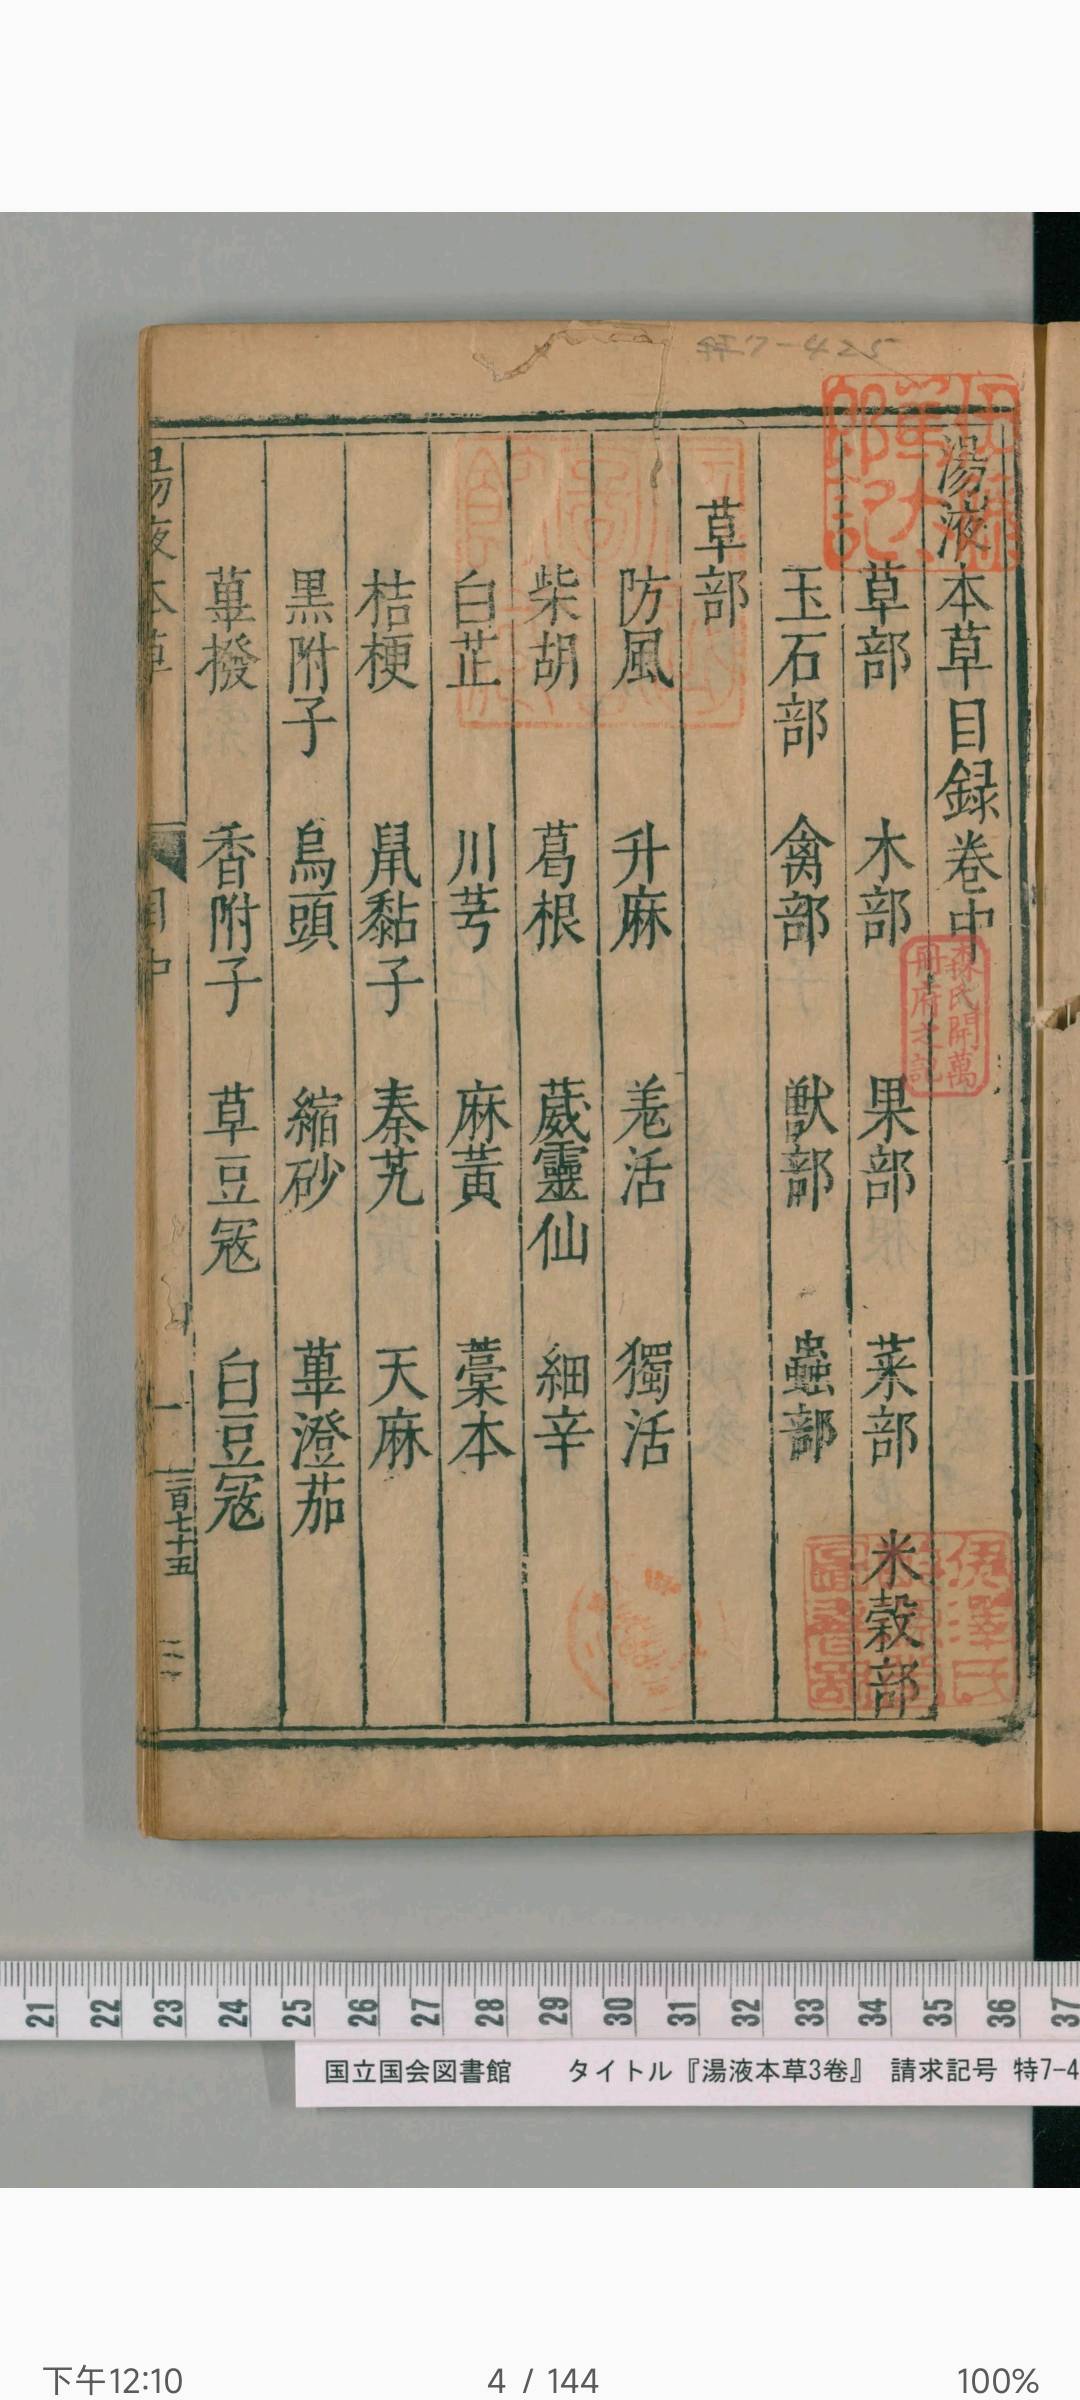 湯液本草目録卷中
草部 木部 果部 菜部 米穀部
玉石部 禽部 獸部 蟲部
草部
防風 升麻 羗活 獨活
柴胡 葛根 葳靈仙 細辛
白芷 川芎 麻黃 藁本
桔梗 鼠黏子 秦艽 天麻
黒附子 烏頭 縮砂 蓽澄茄
蓽撥 香附子 草豆蔲 白豆蔲
湯液本草 目中 一 二百七十五
森氏開萬
冊府之記
伊澤氏
特7-425
21 22 23 24 25 26 27 28 29 30 31 32 33 34 35 36 37
国立国会図書館 タイトル『湯液本草3巻』 請求記号 特7-4
下午12:10 4 / 144 100%